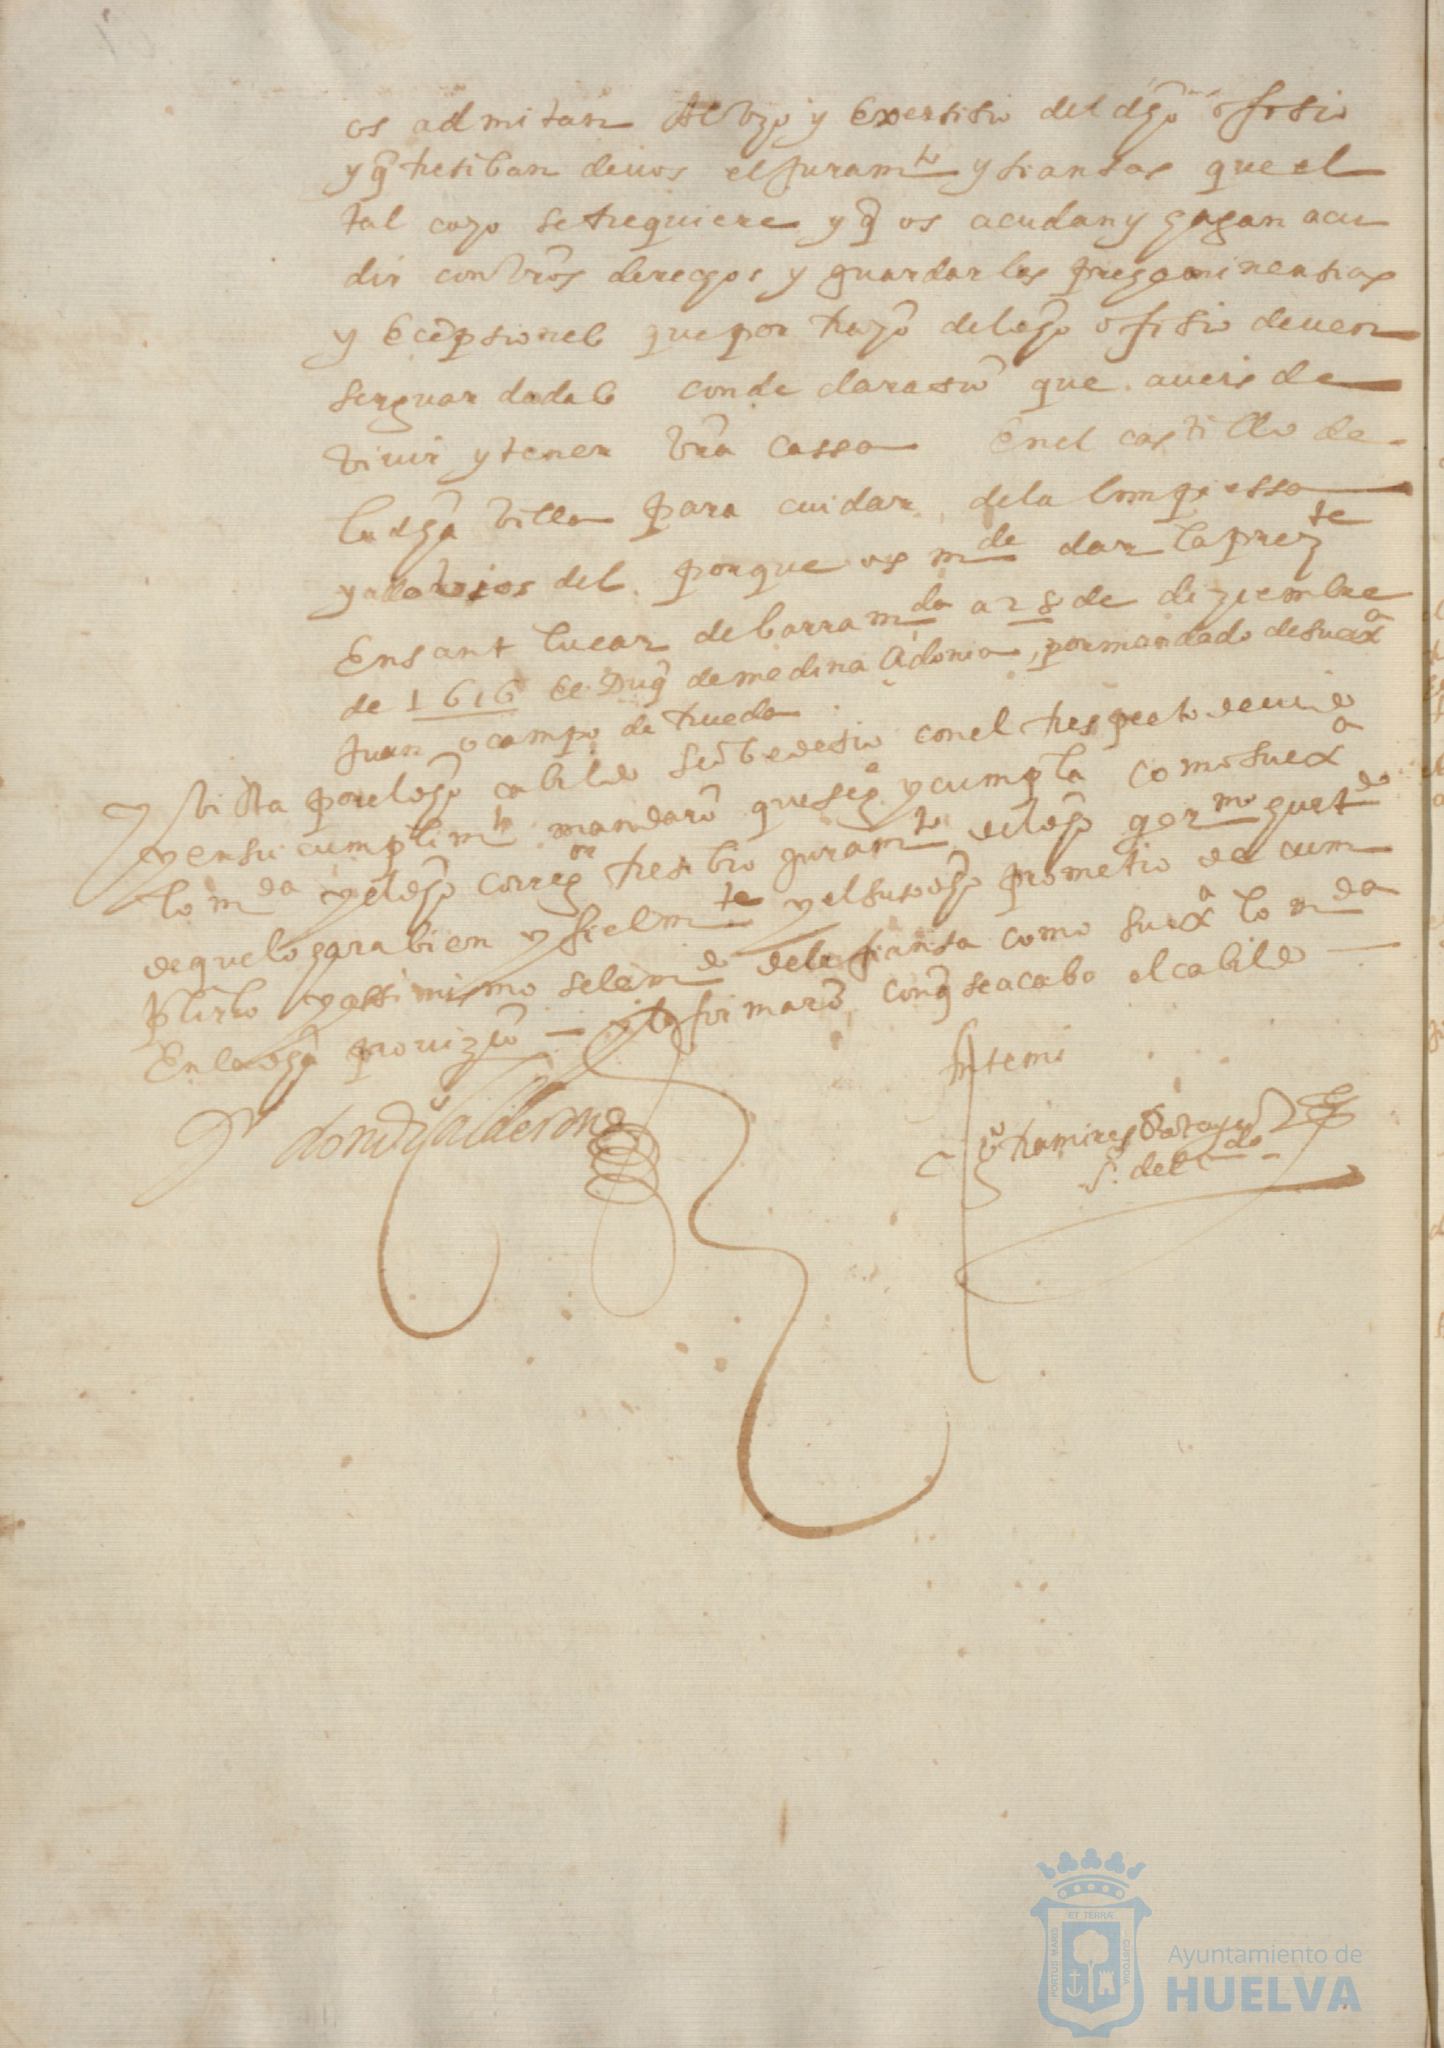 os admitan Al Vzo y Exersisio del dho ofisio
y q̃ Resiban de uos el juramto y fiansas que el
tal cazo se Requiere y q̃ os acudan y hagan acu
dir con Vros derechos y guardar las preheminensias
y Ecepsiones que por Razō del dho ofisio deuen
ser guardadas con declarasiō que aueis de
Viuir y tener Vra cassa En el castillo de
la dha Villa para cuidar de la limpiessa
y del porque os mde dar la prezte
En sant lucar de barramda a 28 de diziembre
de 1616 El Duq̃ de medina sidonia, por mandado de su exa
Juan ocampo de Rueda
Y Vista por el dho cabildo se obedesio con el Respecto deuido
y en su cumplimto mandarō que se gde y cumpla como su exa
lo mda y el dho Corregor Resibio juramto del dho germo
de que lo hara bien y fielmte y el susodho prometio de cum
plirlo y assimismo se le mdo de la fiansa como su exa lo mda
En la dha prouiziō — y lo firmarō con q̃ se acabo el cabildo —
Antemi
don Calderon
Ramires
s. del cdo
ET TERRÆ
PORTUS MARIS
CUSTODIA
Ayuntamiento de
HUELVA